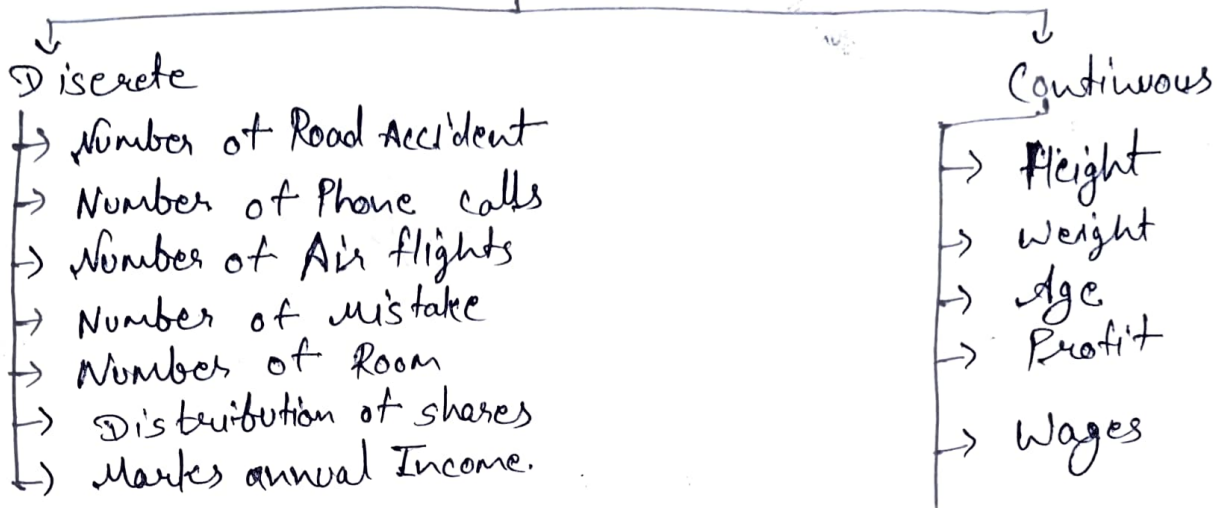 Discrete
Number of Road Accident
Number of Phone calls
Number of Air flights
Number of Mistake
Number of Room
Distribution of shares
Marks annual Income.
Continuous
Height
Weight
Age
Profit
Wages